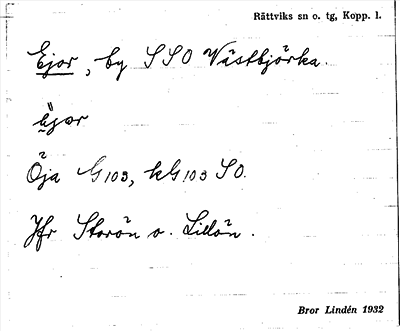 Rättviks sn o. tg, Kopp. l.
Ejor, by SSO Västbjörka.
Öja G103, kG103 SO.
Jfr Storön o. Lillön.
Bror Lindén 1932